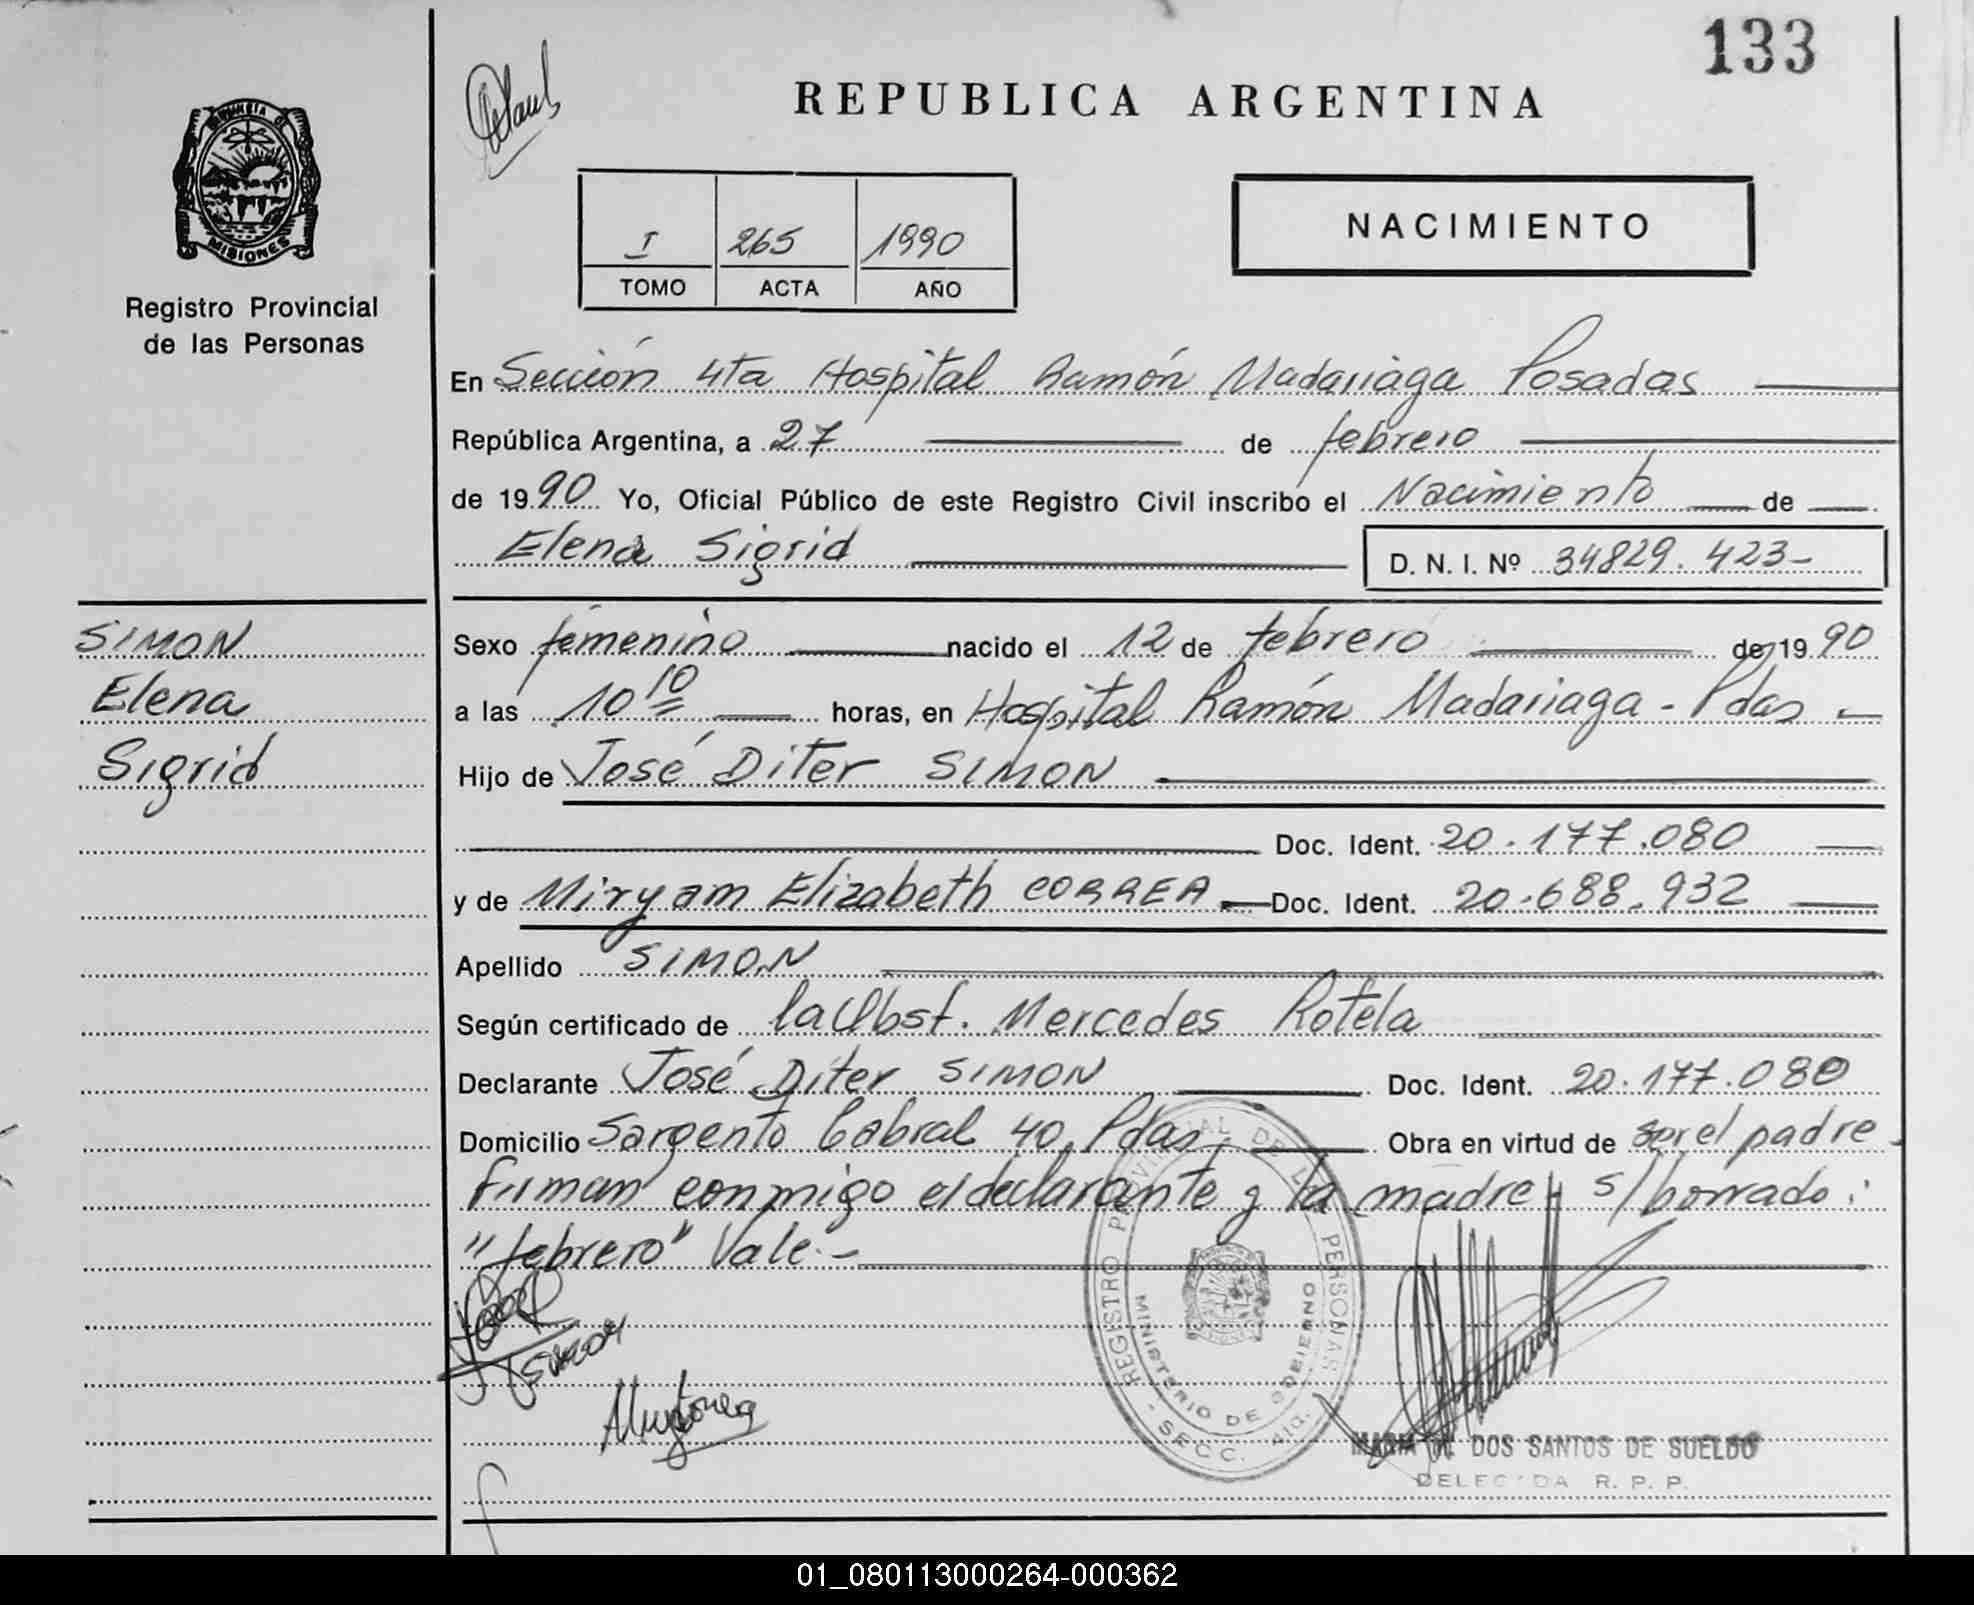 133
REPUBLICA ARGENTINA
PROVINCIA DE
MISIONES
Registro Provincial
de las Personas
I 265 1990
TOMO ACTA AÑO
NACIMIENTO
En Sección 4ta Hospital Ramón Madariaga Posadas
República Argentina, a 27 de febrero
de 1990 Yo, Oficial Público de este Registro Civil inscribo el Nacimiento de
Elena Sigrid D. N. I. Nº 34829.423-
SIMON
Elena
Sigrid
Sexo femenino nacido el 12 de febrero de 1990
a las 10 10 horas, en Hospital Ramón Madariaga - Pdas
Hijo de José Diter SIMON
Doc. Ident. 20.177.080
y de Miryam Elizabeth CORREA Doc. Ident. 20.688.932
Apellido SIMON
Según certificado de la Obst. Mercedes Rotela
Declarante José Diter SIMON Doc. Ident. 20.177.080
Domicilio Sargento Cabral 40, Pdas, Obra en virtud de ser el padre
firman conmigo el declarante y la madre - s/borrado:
"febrero" Vale.-
REGISTRO PROVINCIAL DE LAS PERSONAS
MINISTERIO DE GOBIERNO
- SECC. 4ta.
MARIA DOS SANTOS DE SUELDO
DELEGADA R. P. P.
01_080113000264-000362